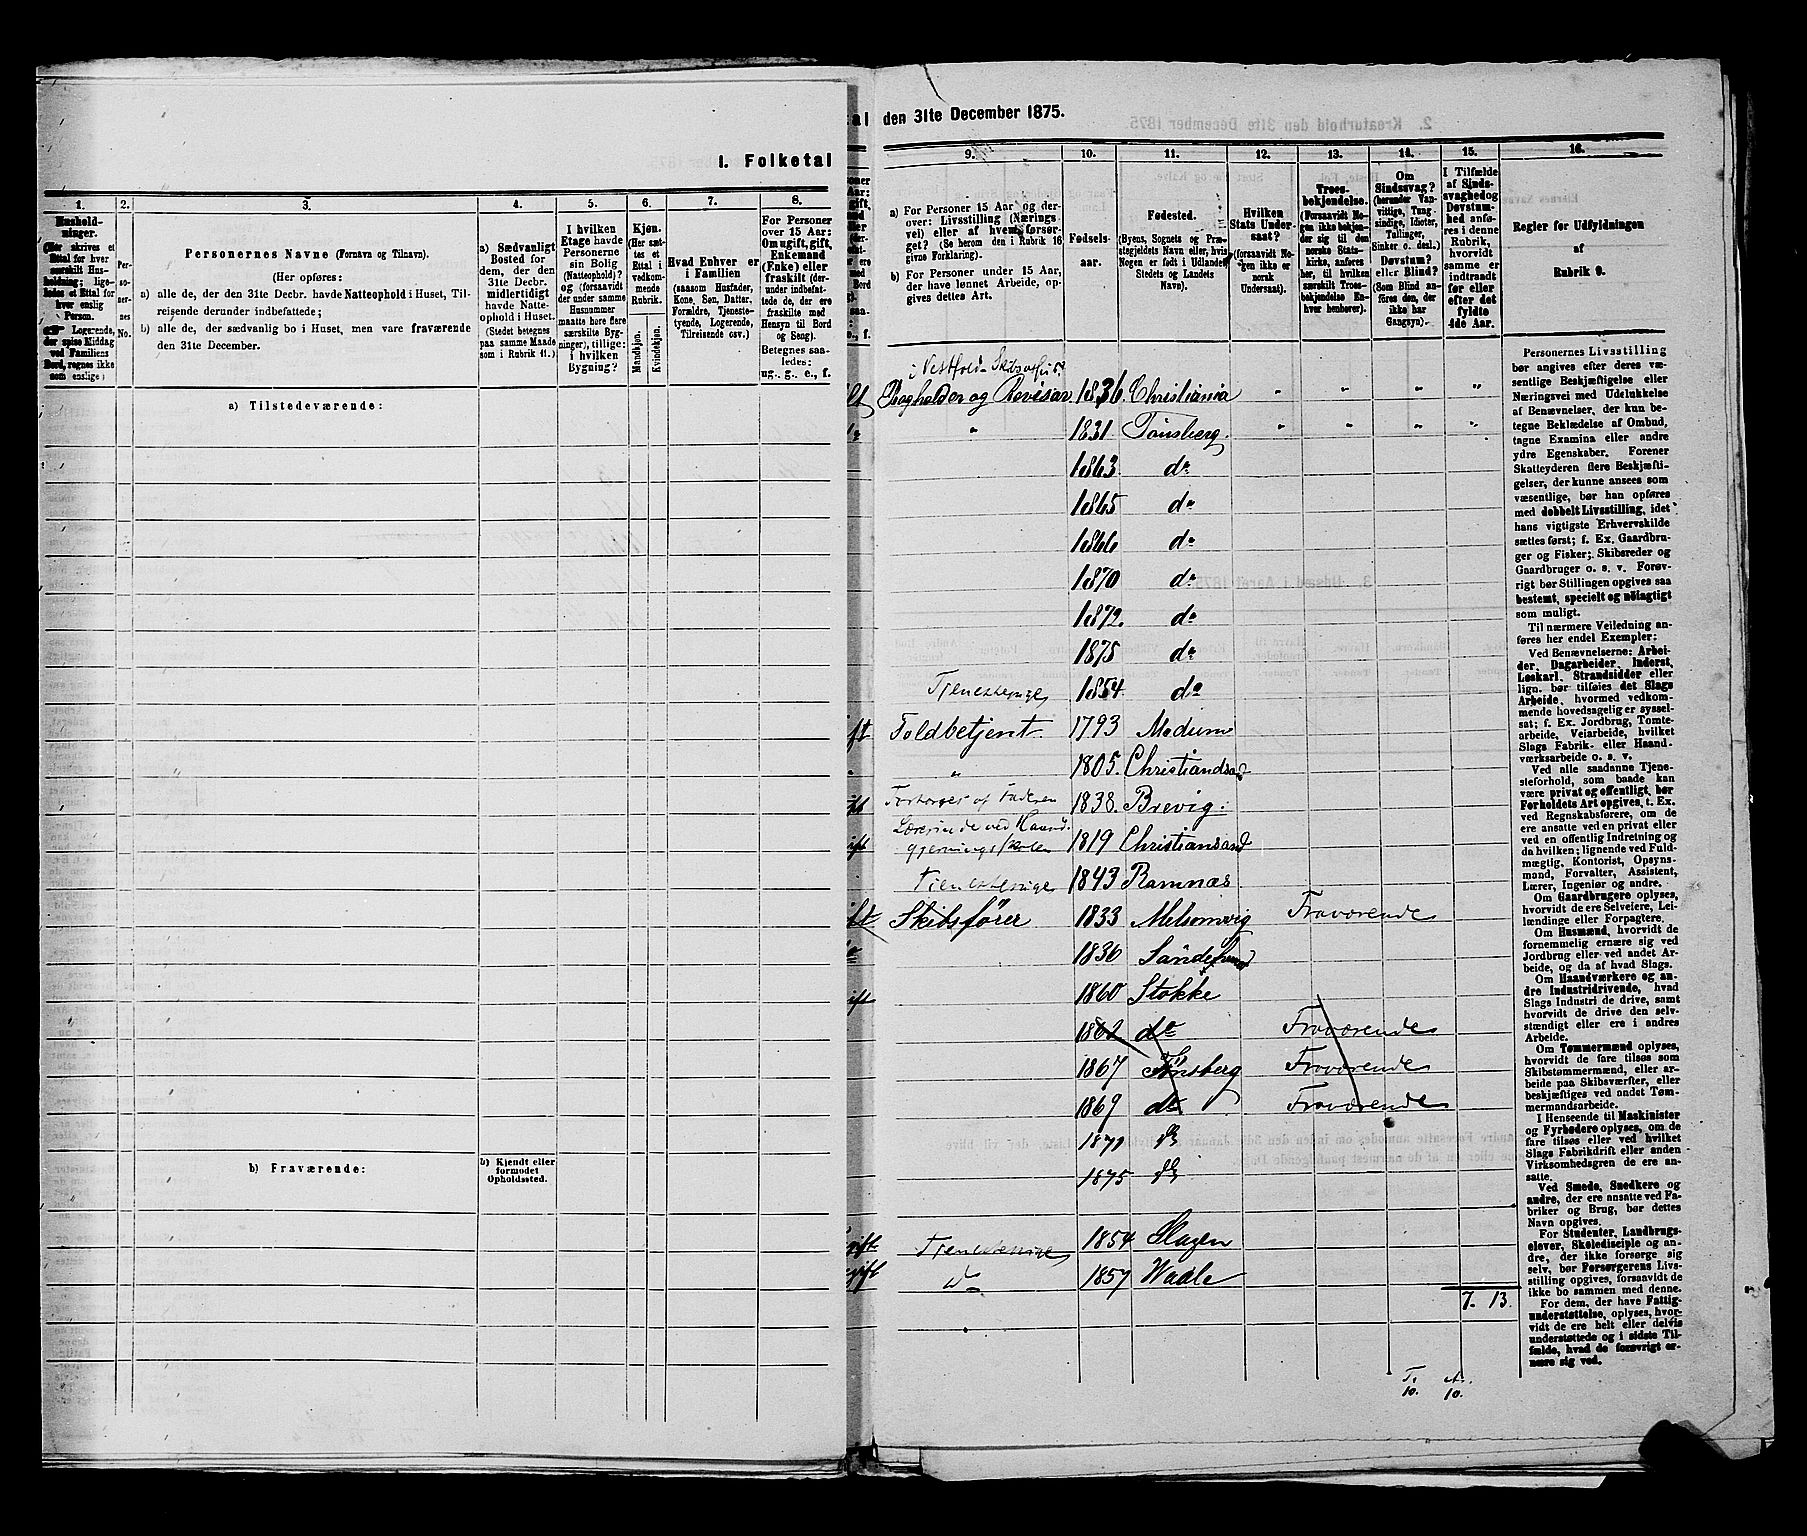 1. Folketal
1. 2. 3. 4. 5. 6. 7. 8.
Hushold-
ninger.
(Her skrives et
Ettal for hver
særskilt Hus-
holdning; lige-
ledes et Ettal for
hver enslig
Person.
Logerende,
der spise Middag
ved Familiens
Bord, regnes ikke
som enslige)
Per-
so-
ner-
nes
No.
Personernes Navne (Fornavn og Tilnavn).
(Her opføres:
a) alle de, der den 31te Decbr. havde Natteophold i Huset, Til-
reisende derunder indbefattede;
b) alle de, der sædvanlig bo i Huset, men vare fraværende
den 31te December.
a) Sædvanligt
Bosted for
dem, der den
31te Decbr.
midlertidigt
havde Natte-
ophold i Huset.
(Stedet betegnes
paa samme Maade
som i Rubrik 11.)
I hvilken
Etage havde
Personerne
sin Bolig
(Natteophold)?
og (forsaavidt
der under samme
Husnummer
maatte høre flere
særskilte Byg-
ninger), tillige:
i hvilken
Bygning?
Kjøn.
(Her sæt-
tes et
Ettal i
vedkom-
mende
Rubrik.
Mandkjøn.
Kvindekjøn.
Hvad Enhver er
i Familien
(saasom Husfader,
Kone, Søn, Datter,
Forældre, Tjeneste-
tyende, Logerende,
Tilreisende osv.)
For Personer
over 15 Aar:
Om ugift, gift,
Enkemand
(Enke) eller
fraskilt (der-
under indbefat-
tede de, der ere
fraskilte med
Hensyn til Bord
og Seng).
Betegnes saa-
ledes:
ug., g., e., f.
a) Tilstedeværende:
b) Fraværende:
b) Kjendt eller
formodet
Opholdssted.
den 31te December 1875.
9. 10. 11. 12. 13. 14. 15. 16.
a) For Personer 15 Aar og der-
over: Livsstilling (Nærings-
vei) eller af hvem forsør-
get? (Se herom den i Rubrik 16
givne Forklaring).
b) For Personer under 15 Aar,
der have lønnet Arbeide, op-
gives dettes Art.
Fødsels-
aar.
Fødested.
(Byens, Sognets og Præ-
stegjeldets Navn eller, hvis
Nogen er født i Udlandet,
Stedets og Landets
Navn).
Hvilken
Stats Under-
saat?
(forsaavidt No-
gen ikke er
norsk
Undersaat).
Troes-
bekjendelse.
(Forsaavidt No-
gen ikke bekjen-
der sig til den
norske Stats-
kirke, anføres
her, til hvilken
særskilt Troes-
bekjendelse En-
hver henhører).
Om
Sindssvag?
(herunder Van-
vittige, Tung-
sindige, Idioter,
Tullinger,
Sinker o. desl.)
Døvstum?
eller Blind?
(Som Blind an-
føres den, der
ikke har
Gangsyn).
I Tilfælde
af Sinds-
svaghed og
Døvstum-
hed anfø-
res i denne
Rubrik,
hvorvidt
samme er
indtraadt
før eller
efter det
fyldte
4de Aar.
Regler for Udfyldningen
af
Rubrik 9.
Bogholder og Revisor 1836. Christiania
1831 Tønsberg.
1863 do
1865 do
1866 do
1870 do
1872. do
1875 do
Tjenestepige 1854 do
Toldbetjent 1793 Modum
1805. Christiandsand
Forsørges af Faderen 1838. Brevig
Lærerinde ved Haand-
gjerningsskolen 1819 Christiansand
Tjenestepige 1843 Ramnæs
Skibsfører 1833 Melsomvig Fraværende
1836 Sandeherred
1860 Stokke
1862 do Fraværende
1867 Tønsberg Fraværende
1869 do Fraværende
1871 do
1875 do
Tjenestepige 1854 Slagen
do 1857 Waale
7. 13.
T. A.
10. 10.
Personernes Livsstilling
bør angives efter deres væ-
sentlige Beskjæftigelse eller
Næringsvei med Udelukkelse
af Benævnelser, der kun be-
tegne Beklædelse af Ombud,
tagne Examina eller andre
ydre Egenskaber. Forener
Skatteyderen flere Beskjæfti-
gelser, der kunne ansees som
væsentlige, bør han opføres
med dobbelt Livsstilling, idet
hans vigtigste Erhvervskilde
sættes først; f. Ex. Gaardbru-
ger og Fisker; Skibsreder og
Gaardbruger o. s. v. Forøv-
rigt bør Stillingen opgives saa
bestemt, specielt og nøiagtigt
som muligt.
Til nærmere Veiledning an-
føres her endel Exempler:
Ved Benævnelserne: Arbei-
der, Dagarbeider, Inderst,
Løskarl, Strandsidder eller
lign. bør tilføies det Slags
Arbeide, hvormed vedkom-
mende hovedsagelig er syssel-
sat; f. Ex. Jordbrug, Tomte-
arbeide, Veiarbeide, hvilket
Slags Fabrik- eller Haand-
værksarbeide o. s. v.
Ved alle saadanne Tjene-
steforhold, som baade kan
være privat og offentligt, bør
Forholdets Art opgives, t. Ex.
ved Regnskabsførere, om de
ere ansatte ved en privat eller
en offentlig Indretning og
da hvilken; lignende ved Fuld-
mægtig, Kontorist, Opsyns-
mand, Forvalter, Assistent,
Lærer, Ingeniør og andre.
Om Gaardbrugere oplyses,
hvorvidt de ere Selveiere, Lei-
lændinge eller Forpagtere.
Om Husmænd, hvorvidt de
fornemmelig ernære sig ved
Jordbrug eller ved andet Ar-
beide, og da af hvad Slags.
Om Haandværkere og an-
dre Industridrivende, hvad
Slags Industri de drive, samt
hvorvidt de drive den selv-
stændigt eller ere i andres
Arbeide.
Om Tømmermænd oplyses,
hvorvidt de fare tilsøs som
Skibstømmermænd, eller ar-
beide paa Skibsværfter, eller
beskjæftiges ved andet Tøm-
mermandsarbeide.
I Henseende til Maskinister
og Fyrbødere oplyses, om de
fare tilsøs eller ved hvilket
Slags Fabrikdrift eller anden
Virksomhedsgren de ere an-
satte.
Ved Smede, Snedkere og
andre, der ere ansatte ved Fa-
briker og Brug, bør dettes
Navn opgives.
For Studenter, Landbrugs-
elever, Skoledisciple og an-
dre, der ikke forsørge sig
selv, bør Forsørgerens Livs-
stilling opgives, forsaavidt de
ikke bo sammen med denne.
For dem, der have Fattig-
understøttelse, oplyses, hvor-
vidt de ere helt eller delvis
understøttede og i sidste Til-
fælde, hvad de forøvrigt er-
nære sig ved.